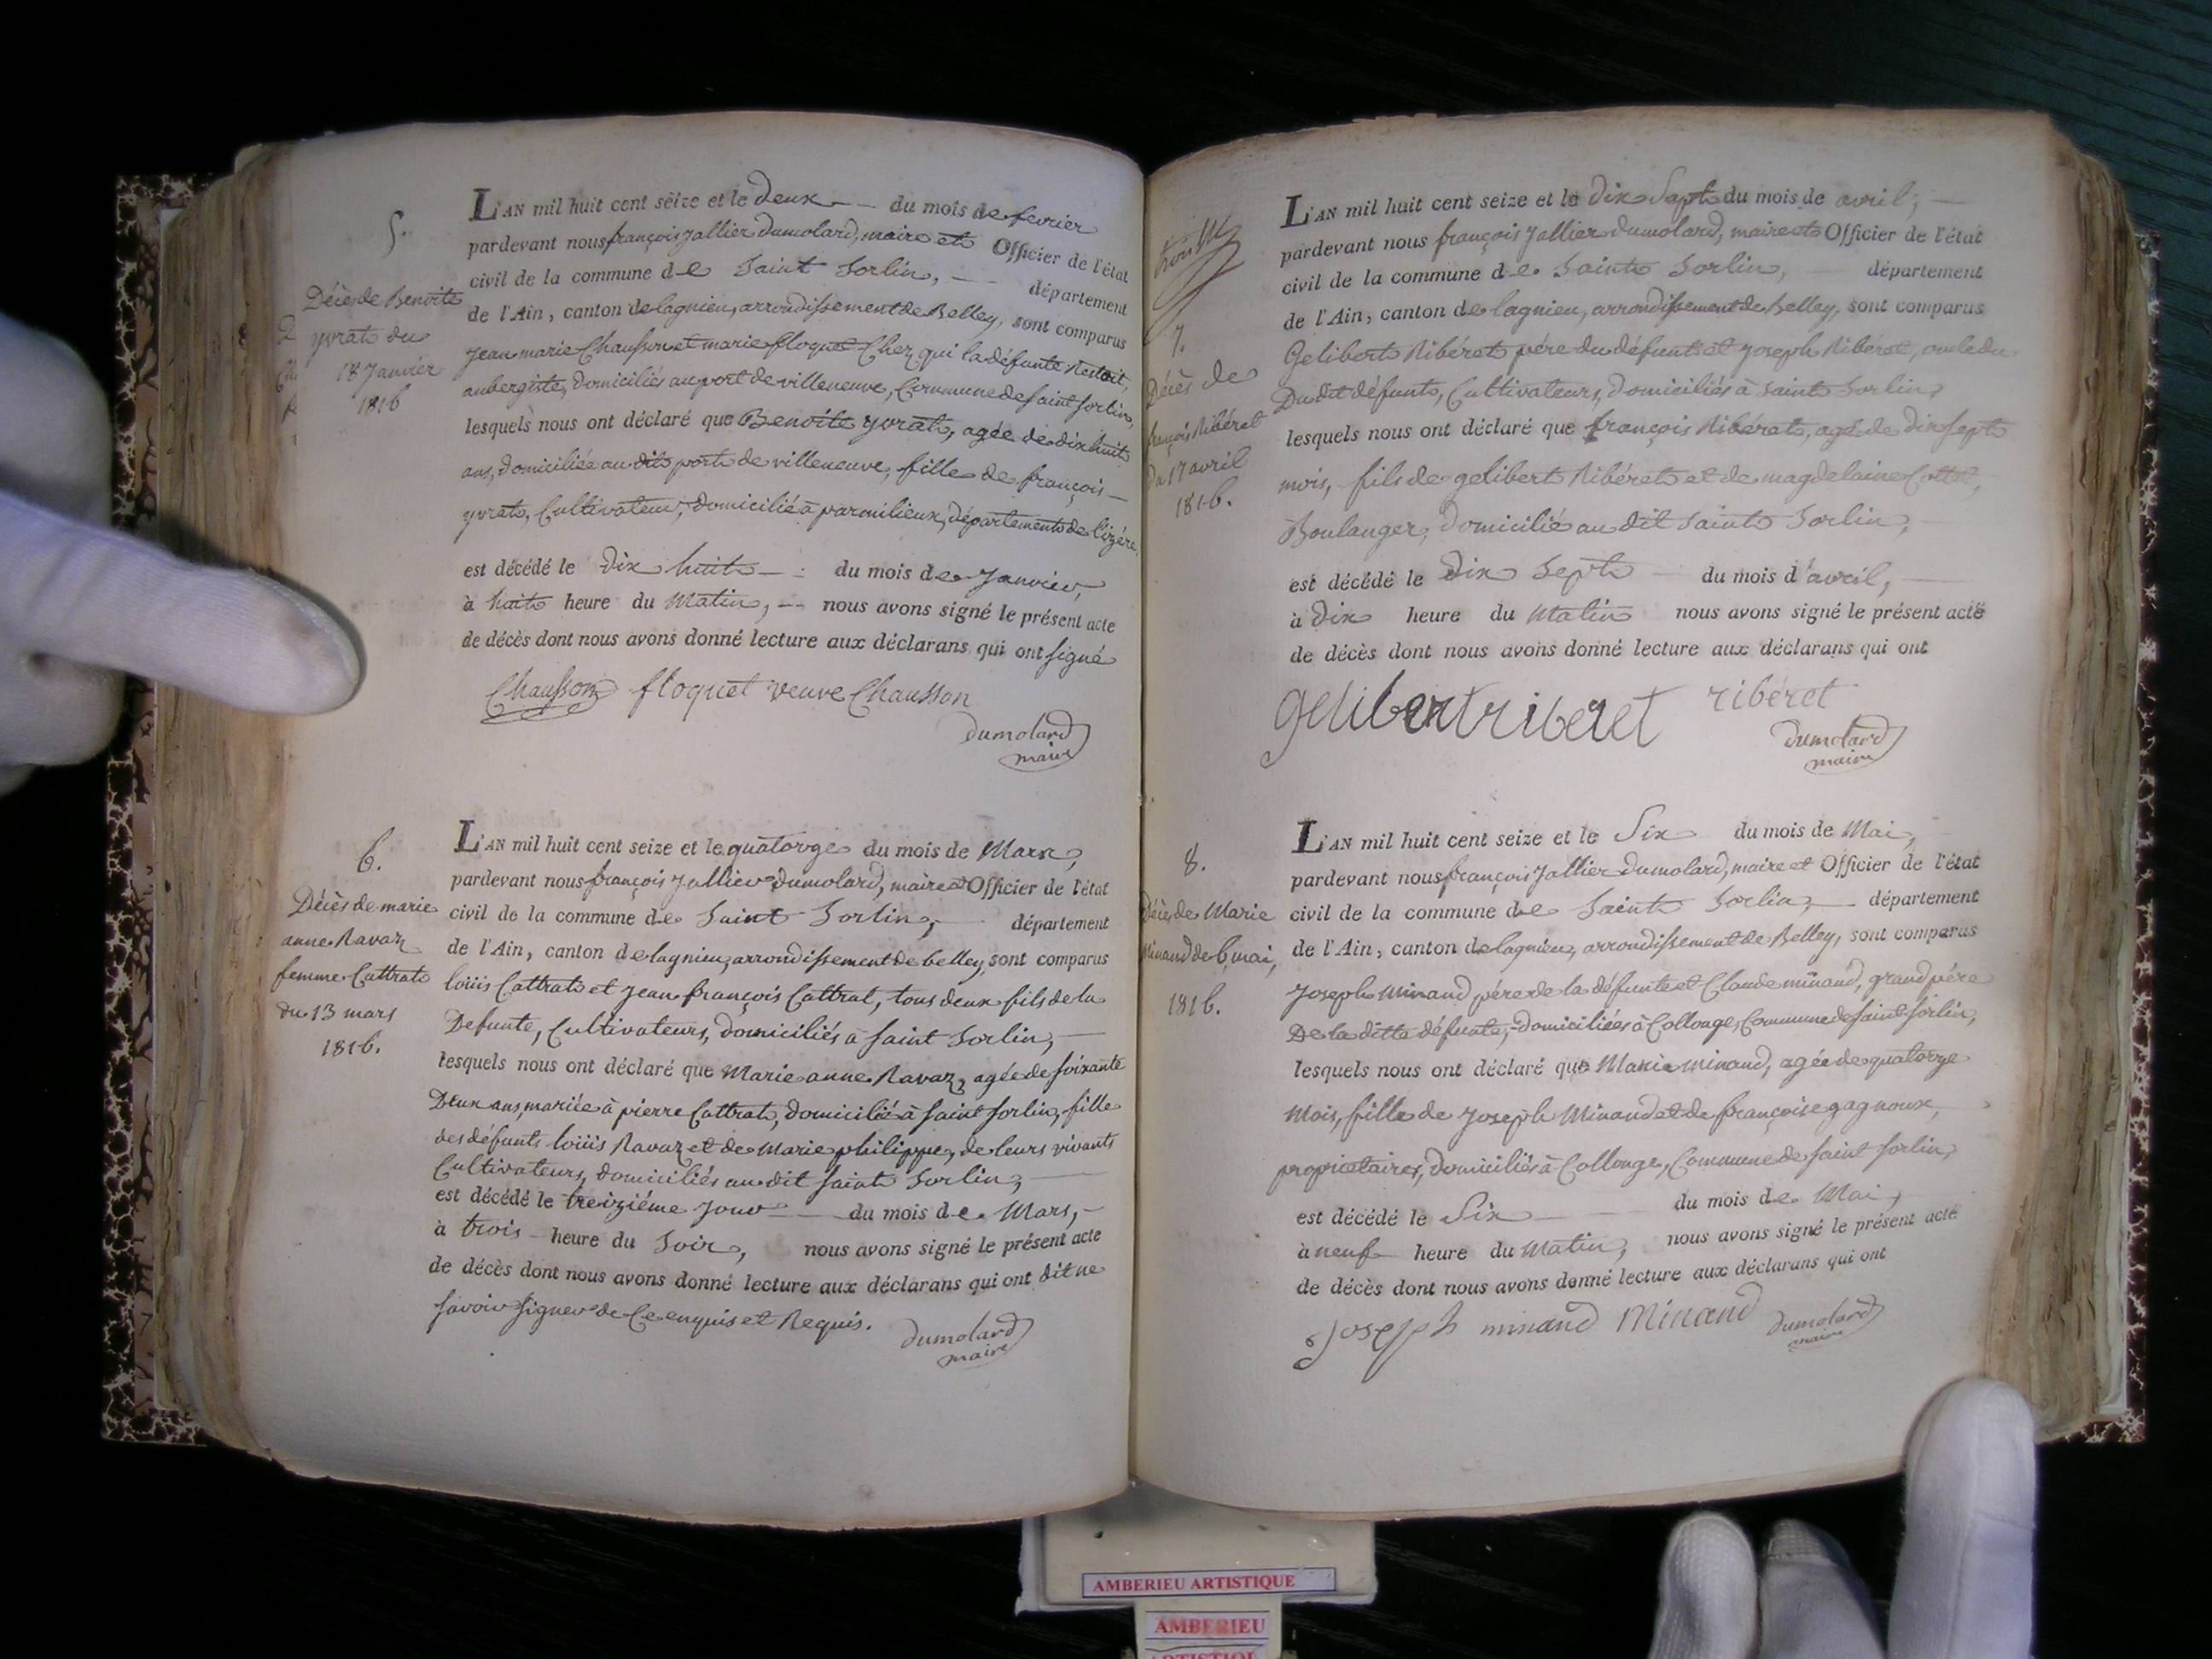 5.
Décès de Benoite
yvrat du
18 Janvier
1816
L'AN mil huit cent seize et le deux du mois de fevrier
pardevant nous françois Jallier Dumolard, maire et Officier de l'état
civil de la commune de Saint Sorlin, département
de l'Ain, canton de lagnieu, arrondissement de Belley, sont comparus
Jean marie Chausson et marie floquet Chez qui la défunte Restoit,
aubergiste, domiciliés au port de villeneuve, Commune de saint sorlin,
lesquels nous ont déclaré que Benoite yvrat, agée de dix huit
ans, domiciliée au dit port de villeneuve, fille de françois
yvrat, Cultivateur, domicilié à parmilieux, département de l'izére,
est décédé le dix huit du mois de Janvier,
à huit heure du Matin, nous avons signé le présent acte
de décès dont nous avons donné lecture aux déclarans qui ont signé
Chausson floquet veuve Chausson
Dumolard
maire
6.
Décès de marie
anne Ravaz
femme Cattrat
du 13 mars
1816.
L'AN mil huit cent seize et le quatorze du mois de Mars,
pardevant nous françois Jallier Dumolard, maire et Officier de l'état
civil de la commune de Saint Sorlin, département
de l'Ain, canton de lagnieu, arrondissement de belley, sont comparus
louis Cattrat et Jean françois Cattrat, tous deux fils de la
Defunte, Cultivateurs, domiciliés à saint Sorlin,
lesquels nous ont déclaré que Marie anne Ravaz, agée de soixante
Deux ans, mariée à pierre Cattrat, domiciliée à saint sorlin, fille
des défunts louis Ravaz et de Marie philippe, de leurs vivants
Cultivateurs, domiciliés au dit saint Sorlin,
est décédé le treizième jour du mois de Mars,
à trois heure du Soir, nous avons signé le présent acte
de décès dont nous avons donné lecture aux déclarans qui ont dit ne
savoir signer de Ce enquis et Requis.
Dumolard
maire
7.
Décès de
françois Ribéret
du 17 avril
1816.
L'AN mil huit cent seize et le dix Sept du mois de avril,
pardevant nous françois Jallier Dumolard, maire et Officier de l'état
civil de la commune de Saint Sorlin, département
de l'Ain, canton de lagnieu, arrondissement de Belley, sont comparus
Gelibert Ribéret pére du défunt et Joseph Ribéret, oncle du
Du dit défunt, Cultivateurs, domiciliés à Saint Sorlin,
lesquels nous ont déclaré que françois Ribéret, agé de dix sept
mois, fils de gelibert Ribéret et de magdelaine
Boulanger, domicilié au dit Saint Sorlin,
est décédé le Dix Sept du mois d'avril,
à Dix heure du Matin nous avons signé le présent acte
de décès dont nous avons donné lecture aux déclarans qui ont
gelibert riberet ribéret
Dumolard
maire
8.
Décès de Marie
Minand de 6 mai,
1816.
L'AN mil huit cent seize et le Six du mois de Mai,
pardevant nous françois Jallier Dumolard, maire et Officier de l'état
civil de la commune de Saint Sorlin, département
de l'Ain, canton de lagnieu, arrondissement de Belley, sont comparus
Joseph Minand, pére de la défunte et Claude minand, grand pére
De la ditte défunte, domiciliées à Collonge, Commune de saint sorlin,
lesquels nous ont déclaré que Marie minand, agée de quatorze
Mois, fille de Joseph Minand et de françoise gagnoux,
propriétaires, domiciliés à Collonge, Commune de saint sorlin,
est décédé le Six du mois de Mai,
à neuf heure du Matin, nous avons signé le présent acte
de décès dont nous avons donné lecture aux déclarans qui ont
Joseph minand Minand Dumolard
maire
AMBERIEU ARTISTIQUE
AMBERIEU
ARTISTIQUE